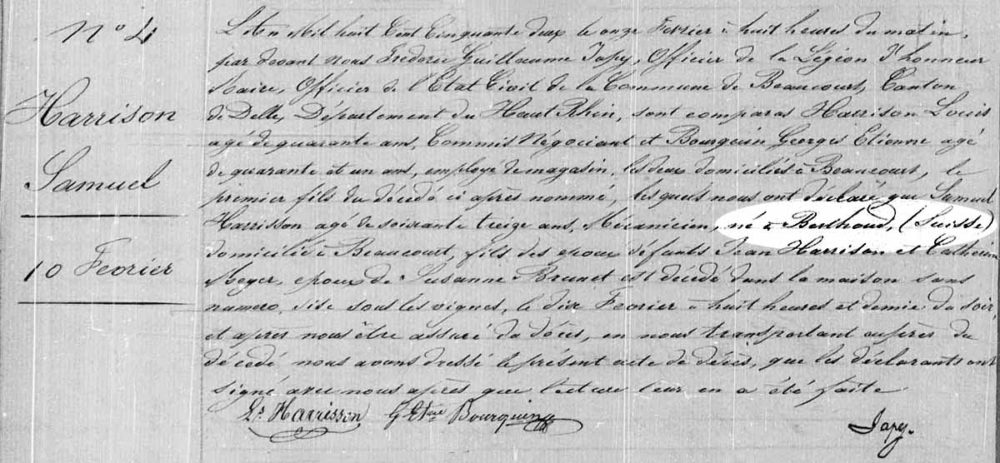 N° 4
Harrison
Samuel
10 Fevrier
L'An Mil huit Cent Cinquante deux le onze Fevrier à huit heures du matin,
par devant nous Fréderic Guillaume Japy, Officier de la Légion d'honneur
Maire, Officier de l'Etat Civil de la Commune de Beaucourt, Canton
de Delle, Département du Haut Rhin, sont comparus Harrison Louis
agé de quarante ans, Commis Négociant et Bourquin Georges Etienne agé
de quarante et un ans, employé de magasin, les deux domiciliés à Beaucourt, le
premier fils du décédé ci après nommé, lesquels nous ont déclaré que Samuel
Harrisson agé de soixante treize ans, Mécanicien, né à Berthoud, (Suisse)
domicilié à Beaucourt, fils des epoux défunts Jean Harrison et Catherine
Meyer, epoux de Susanne Brunet est décédé dans la maison sans
numero, sise sous les vignes, le dix Fevrier à huit heures et demie du soir,
et apres nous être assuré du décès, en nous transportant aupres du
décédé nous avons dressé le présent acte de décès, que les déclarants ont
signé avec nous après que lecture leur en a été faite
Ls Harrisson G Etne Bourquin
Japy